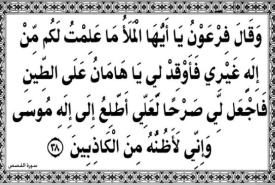 وَقَالَ فِرْعَوْنُ يَا أَيُّهَا الْمَلَأُ مَا عَلِمْتُ لَكُم مِّنْ
إِلَهٍ غَيْرِي فَأَوْقِدْ لِي يَا هَامَانُ عَلَى الطِّينِ
فَاجْعَل لِّي صَرْحًا لَعَلِّي أَطَّلِعُ إِلَى إِلَهِ مُوسَى
وَإِنِّي لَأَظُنُّهُ مِنَ الْكَاذِبِينَ ﴿٣٨﴾
سورة القصص